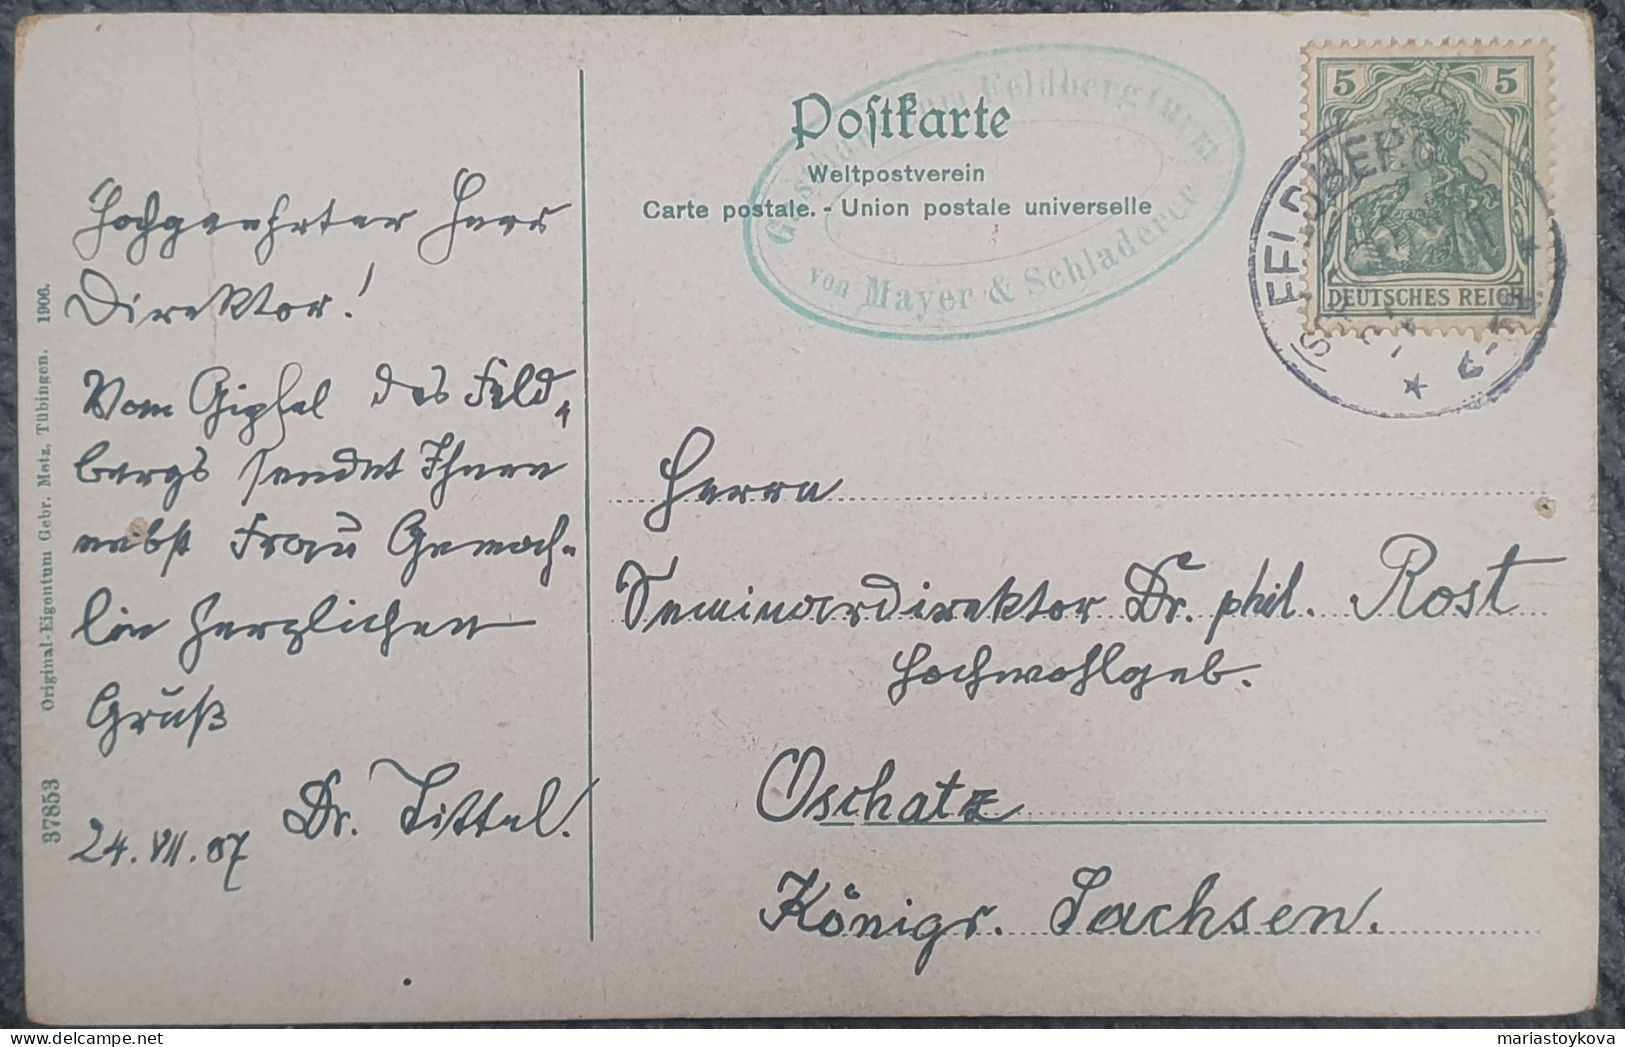 Hochgeehrter Herr
Direktor!
Vom Gipfel des Feld-
bergs sendet Ihnen
nebst Frau Gemah-
lin herzlichen
Gruß
Dr. Tittel.
24. VII. 07
37853 Original-Eigentum Gebr. Metz, Tübingen. 1906.
Postkarte
Weltpostverein
Carte postale. - Union postale universelle
Feldbergturm
von Mayer & Schladerer
5 5
DEUTSCHES REICH
FELDBERG
Herrn
Seminardirektor Dr. phil. Rost
Hochwohlgeb.
Oschatz
Königr. Sachsen.
mariastoykova